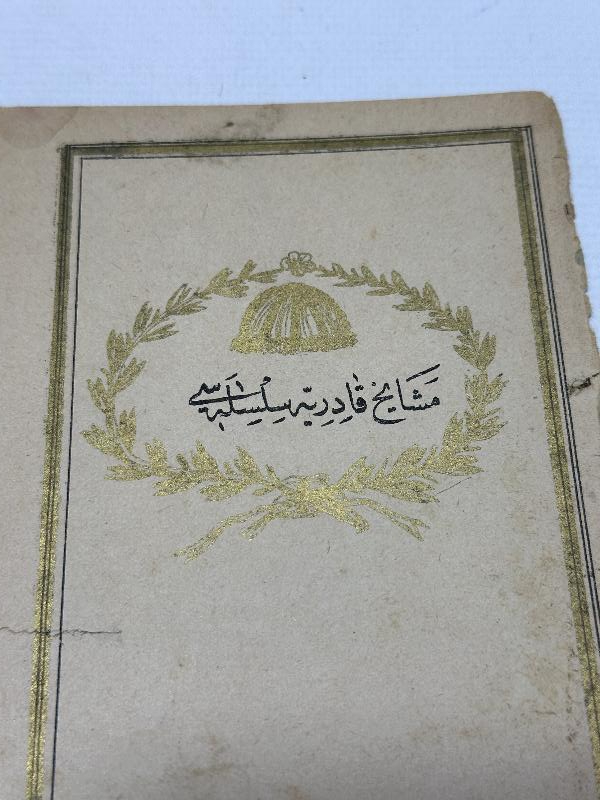 مَشَايِخ قَادِرِيّه سِلْسِلَه‌سى